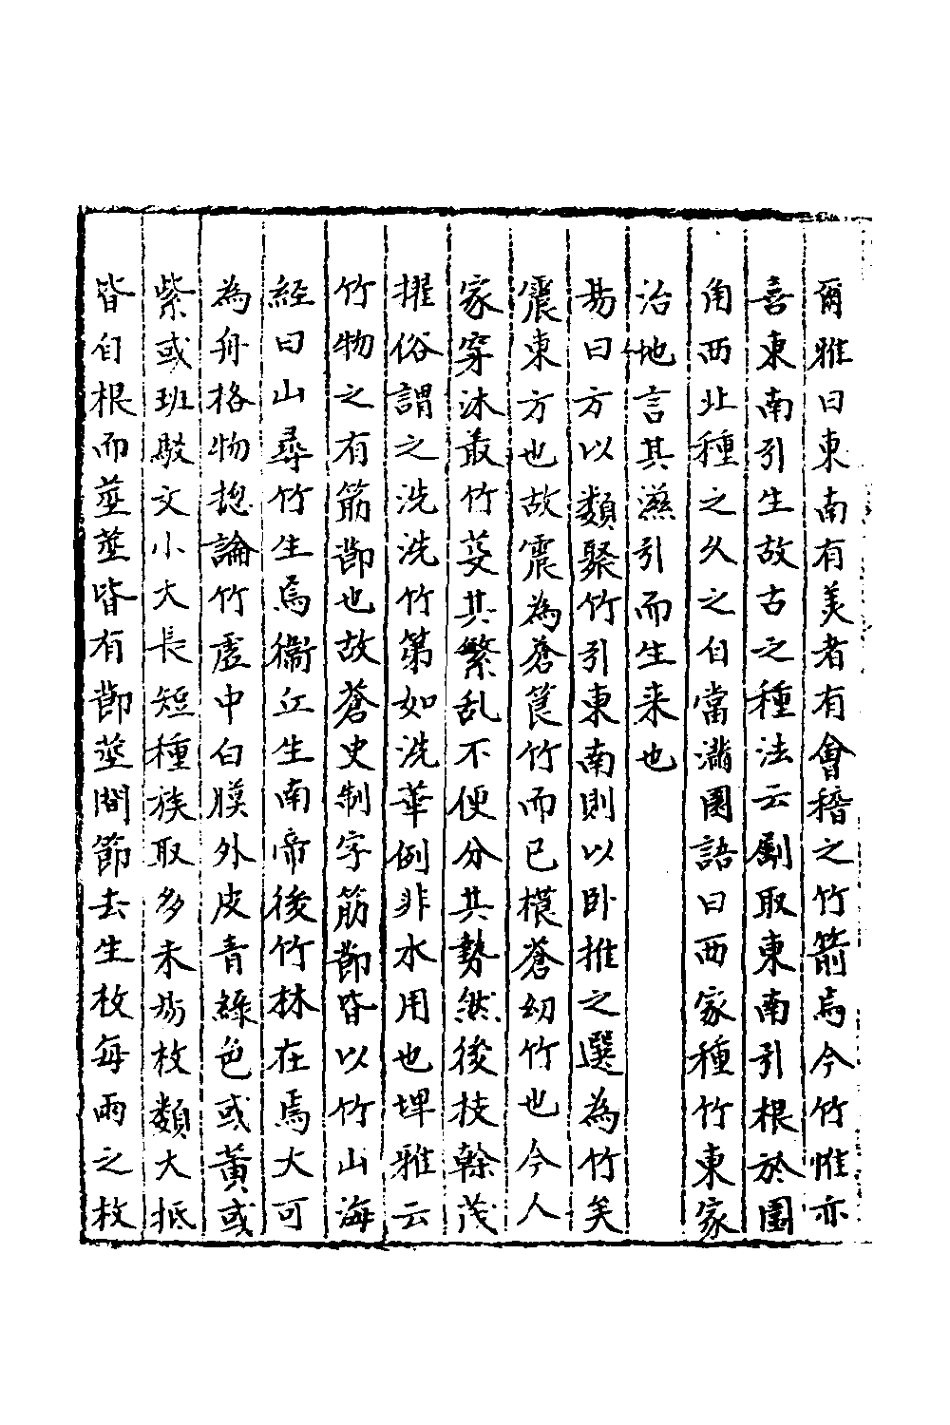 爾雅曰東南有美者有會稽之竹箭焉今竹惟亦
喜東南引生故古之種法云劚取東南引根於園
角西北種之久之自當滿園語曰西家種竹東家
治地言其滋引而生来也
易曰方以類聚竹引東南則以卧推之選為竹矣
震東方也故震為蒼筤竹而已模蒼幼竹也今人
家穿沐叢竹芟其繁乱不便分其勢然後技榦茂
擢俗謂之洗洗竹第如洗華例非水用也埤雅云
竹物之有筋節也故蒼史制字筋節皆以竹山海
經曰山尋竹生焉衞丘生南帝後竹林在焉大可
為舟格物揔論竹虛中白膜外皮青綠色或黃或
紫或班駁文小大長短種族取多未易枚數大抵
皆自根而莖莖皆有節莖間節去生枚每兩之枚